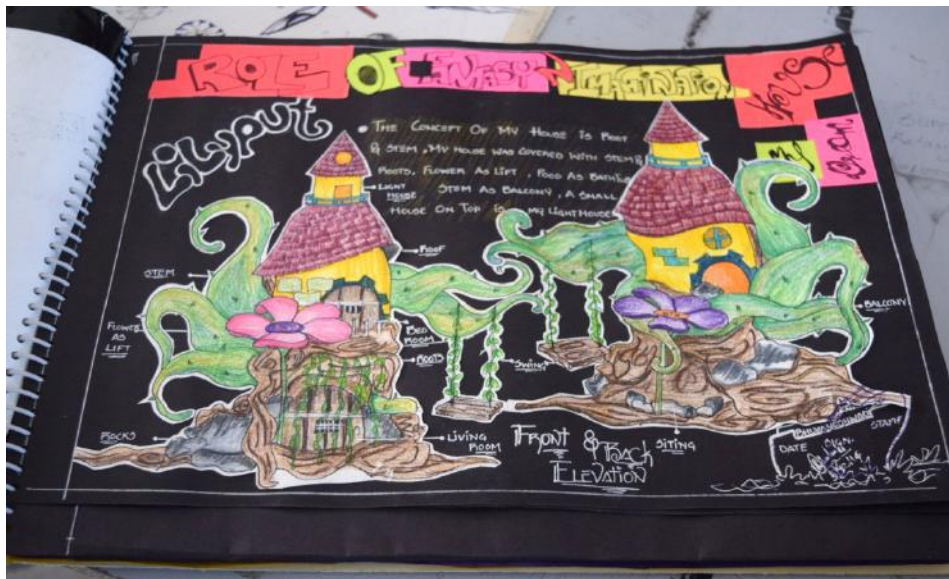 ROLE OF FANTASY & IMAGINATION
HOUSE
Lilyput
• THE CONCEPT OF MY HOUSE IS ROOT
& STEM, MY HOUSE WAS COVERED WITH STEM &
ROOTS, FLOWER AS LIFT, POOD AS BATHING
STEM AS BALCONY, A SMALL
HOUSE ON TOP IS MY LIGHTHOUSE
LIGHT
HOUSE
ROOF
STEM
FLOWER
AS
LIFT
BED
ROOM
ROOTS
SWING
BALCONY
ROCKS
LIVING
ROOM
SITING
FRONT & BACK
ELEVATION
DATE
SIGN.
STAFF